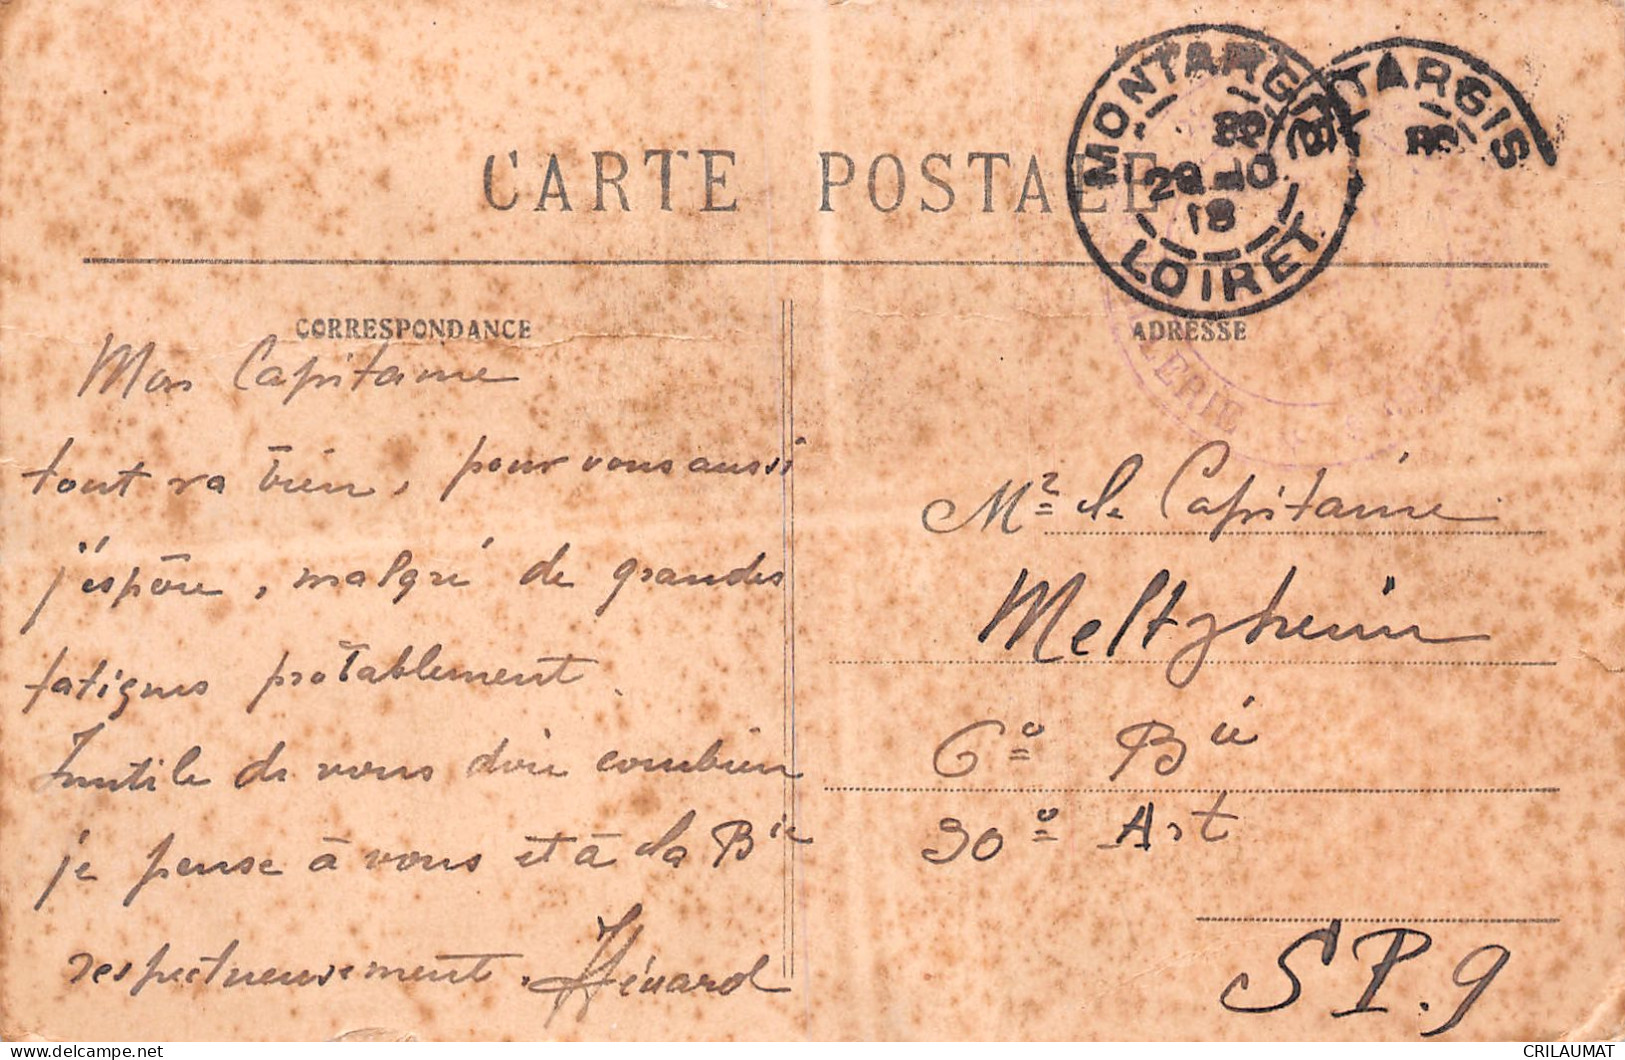 CARTE POSTALE
MONTARGIS
20-10
18
LOIRET
TARGIS
CORRESPONDANCE
Mon Capitaine
tout va bien, pour vous aussi
j'éspère, malgré de grandes
fatigues probablement.
Inutile de vous dire combien
je pense à vous et à la Bie
respectueusement. Hénard
ADRESSE
LERIE
Mr le Capitaine
Meltzheim
6e Bie
30e Art
SP. 9
CRILAUMAT